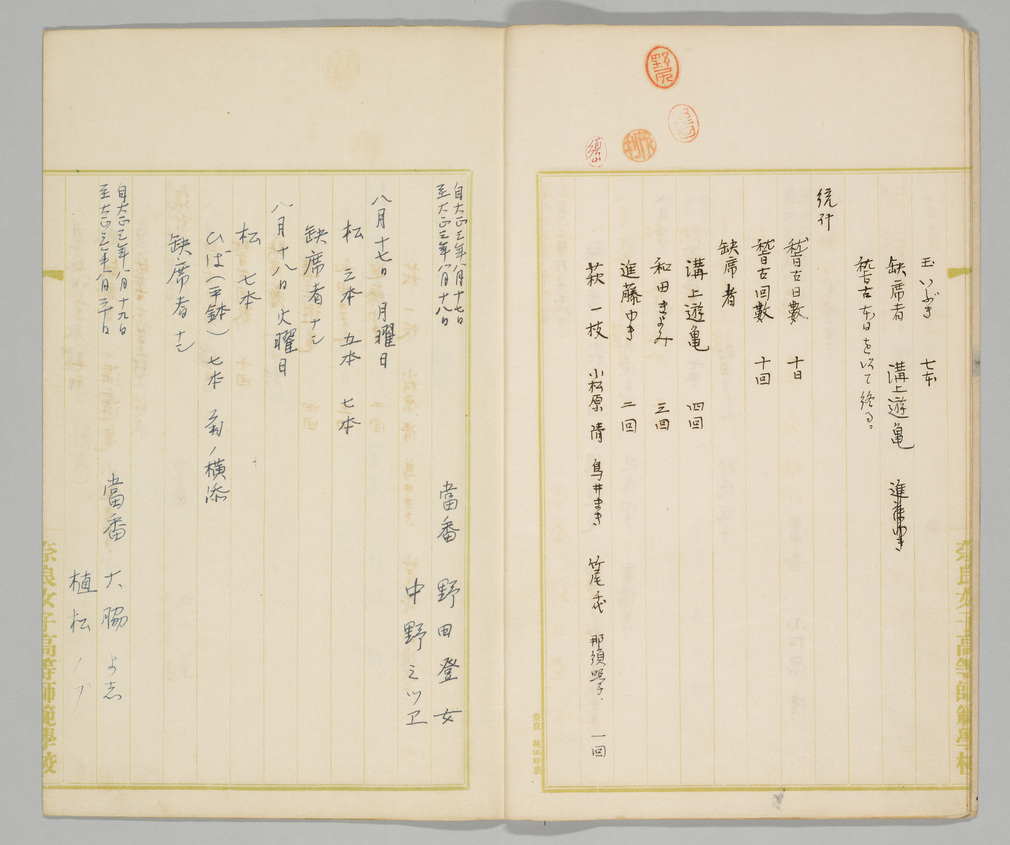 野尻
玉いぶき 七本
缺席者 溝上遊亀 進藤ゆき
稽古本日を以て終る。
統計
稽古日數 十日
稽古回數 十回
缺席者
溝上遊亀 四回
和田きよみ 三回
進藤ゆき 二回
萩 一枝 小松原 清 鳥井まき 竹尾千代 那須照子 一回
奈良女子高等師範學校
自大正三年八月十七日
至大正三年八月十八日
當番 野田登女
中野ミツヱ
八月十七日 月曜日
松 三本 五本 七本
缺席者ナシ
八月十八日 火曜日
松 七本
ひば(平鉢) 七本 前ノ横添
缺席者ナシ
自大正三年八月十九日
至大正三年八月二十日
當番 大脇よ志
植松
奈良女子高等師範學校